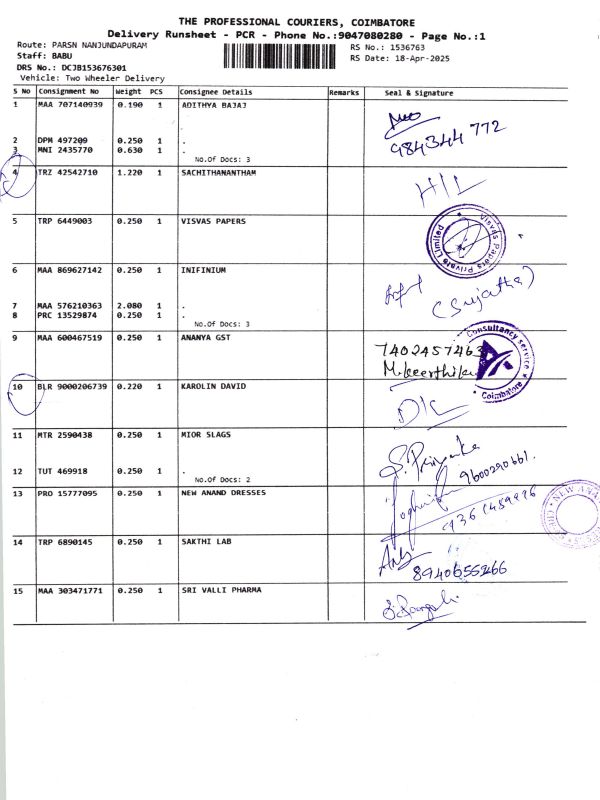 THE PROFESSIONAL COURIERS, COIMBATORE
Delivery Runsheet - PCR - Phone No.:9047080280 - Page No.:1
Route: PARSN NANJUNDAPURAM
RS No.: 1536763
Staff: BABU
RS Date: 18-Apr-2025
DRS No.: DCJB153676301
Vehicle: Two Wheeler Delivery
S No Consignment No Weight PCS Consignee Details Remarks Seal & Signature
1 MAA 707140939 0.190 1 ADITHYA BAJAJ
.
984344 772
2 DPM 497209 0.250 1 .
3 MNI 2435770 0.630 1 .
No.Of Docs: 3
4 TRZ 42542710 1.220 1 SACHITHANANTHAM
5 TRP 6449003 0.250 1 VISVAS PAPERS
Visvas Papers Private Limited
6 MAA 869627142 0.250 1 INIFINIUM
(Sujatha)
7 MAA 576210363 2.080 1 .
8 PRC 13529874 0.250 1 .
No.Of Docs: 3
9 MAA 600467519 0.250 1 ANANYA GST
7402457463
M.keerthika
Consultancy service * Coimbatore *
10 BLR 9000206739 0.220 1 KAROLIN DAVID
D/L
11 MTR 2590438 0.250 1 MIOR SLAGS
S. Priyanka
9600290661.
12 TUT 469918 0.250 1 .
No.Of Docs: 2
13 PRO 15777095 0.250 1 NEW ANAND DRESSES
NEW ANA
14 TRP 6890145 0.250 1 SAKTHI LAB
15 MAA 303471771 0.250 1 SRI VALLI PHARMA